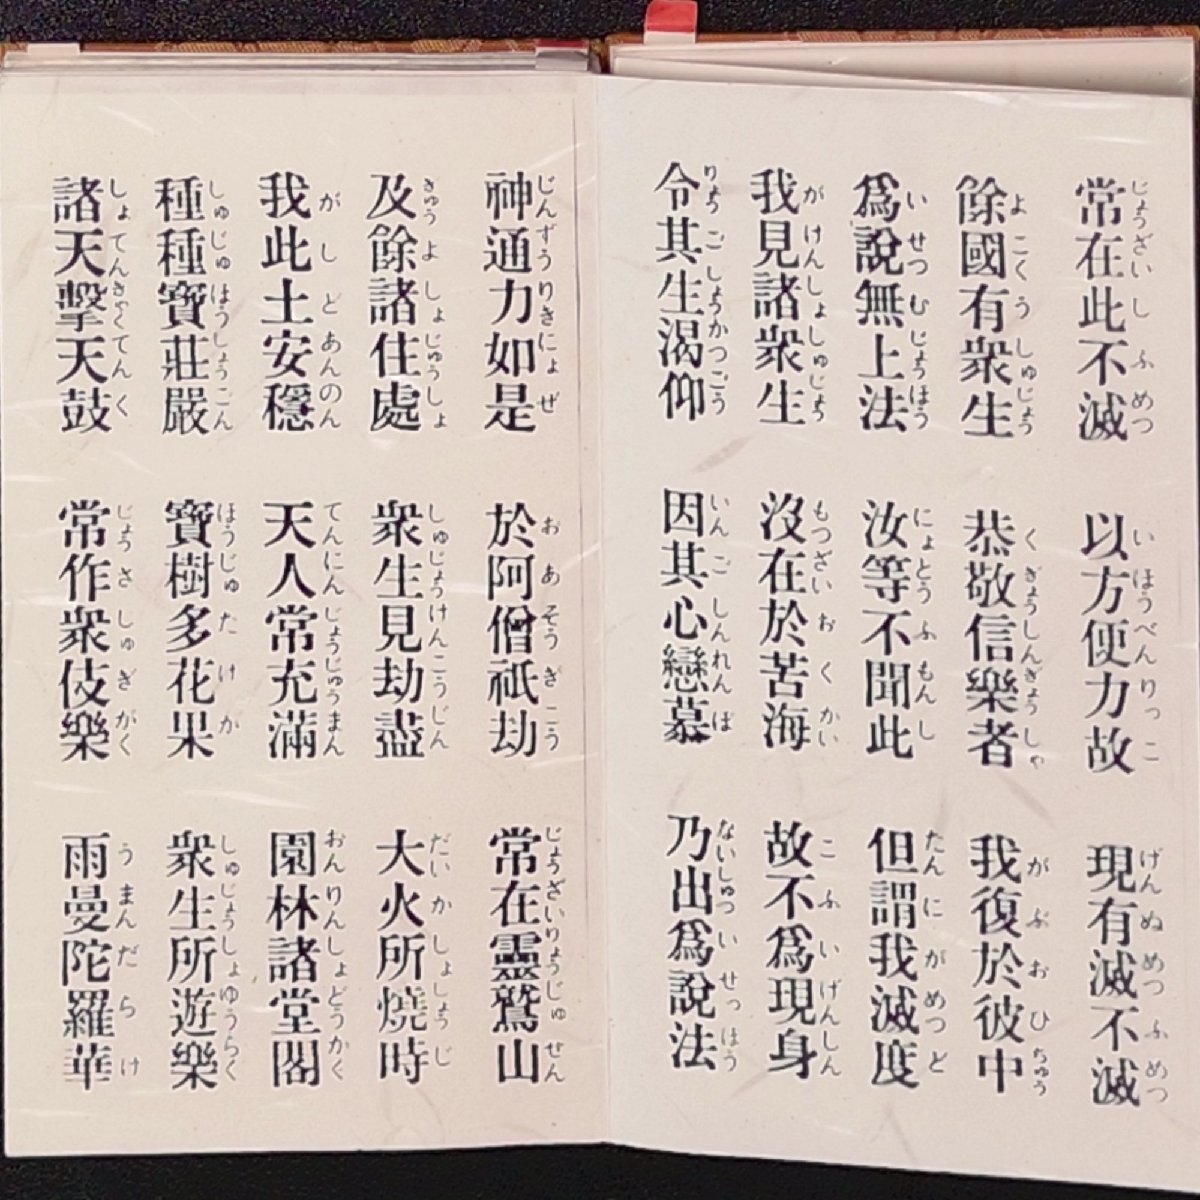 常在此不滅 以方便力故 現有滅不滅
餘國有衆生 恭敬信樂者 我復於彼中
爲說無上法 汝等不聞此 但謂我滅度
我見諸衆生 沒在於苦海 故不爲現身
令其生渴仰 因其心戀慕 乃出爲說法
神通力如是 於阿僧祇劫 常在靈鷲山
及餘諸住處 衆生見劫盡 大火所燒時
我此土安穩 天人常充滿 園林諸堂閣
種種寶莊嚴 寶樹多花果 衆生所遊樂
諸天擊天鼓 常作衆伎樂 雨曼陀羅華